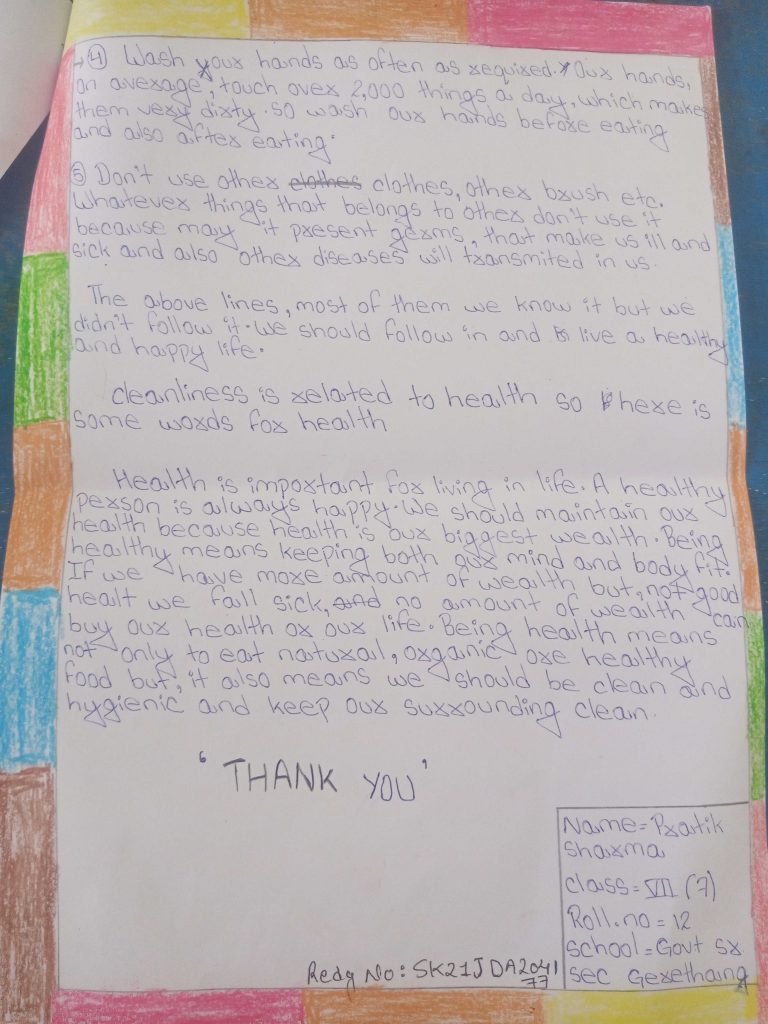 →④ Wash your hands as often as required. Our hands,
on average, touch over 2,000 things a day, which makes
them very dirty. So wash our hands before eating
and also after eating.
⑤ Don't use other clothes clothes, other brush etc.
Whatever things that belongs to other don't use it
because may it present germs, that make us ill and
sick and also other diseases will transmited in us.
The above lines, most of them we know it but we
didn't follow it. We should follow in and live a healthy
and happy life.
cleanliness is related to health so here is
some words for health
Health is important for living in life. A healthy
person is always happy. We should maintain our
health because health is our biggest wealth. Being
healthy means keeping both our mind and body fit.
If we have more amount of wealth but, not good
healt we fall sick, and no amount of wealth can
buy our health or our life. Being health means
not only to eat natural, organic ore healthy
food but, it also means we should be clean and
hygienic and keep our surrounding clean.
'THANK YOU'
Name = Pratik
Sharma
class = VII (7)
Roll.no = 12
School = Govt sr
sec Gerethang
Redg No: SK21JDA2041
77